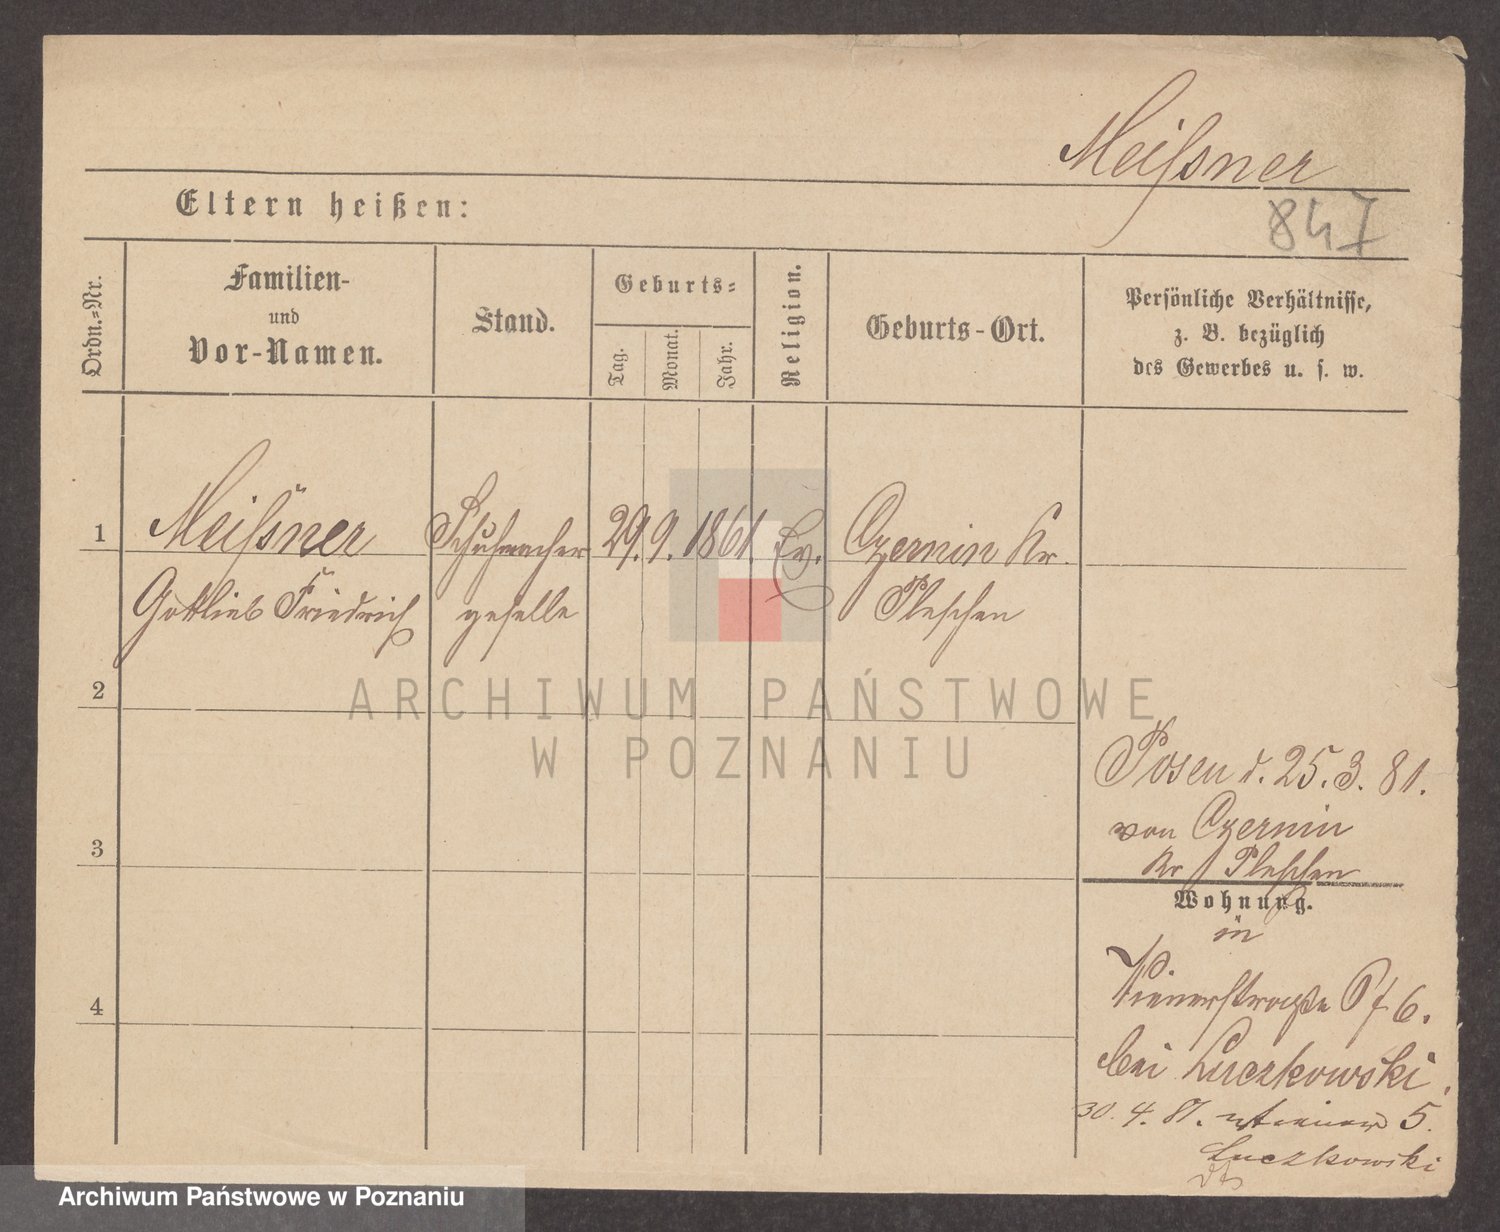 Meißner
847
Eltern heißen:
Ordn.-Nr.
Familien-
und
Vor-Namen.
Stand.
Geburts-
Tag.
Monat.
Jahr.
Religion.
Geburts-Ort.
Persönliche Verhältnisse,
z. B. bezüglich
des Gewerbes u. s. w.
1 Meißner Schuhmacher 29. 9. 1861. Ev. Czernin Kr.
Gottlieb Friedrich geselle Pleschen
2
ARCHIWUM PAŃSTWOWE
W POZNANIU
Posen d. 25. 3. 81.
von Czernin
3
Kr Pleschen
Wohnung.
in
4
Wienerstraße 6.
bei Luczkowski.
30. 4. 81. Wiener 5.
Luczkowski
Archiwum Państwowe w Poznaniu